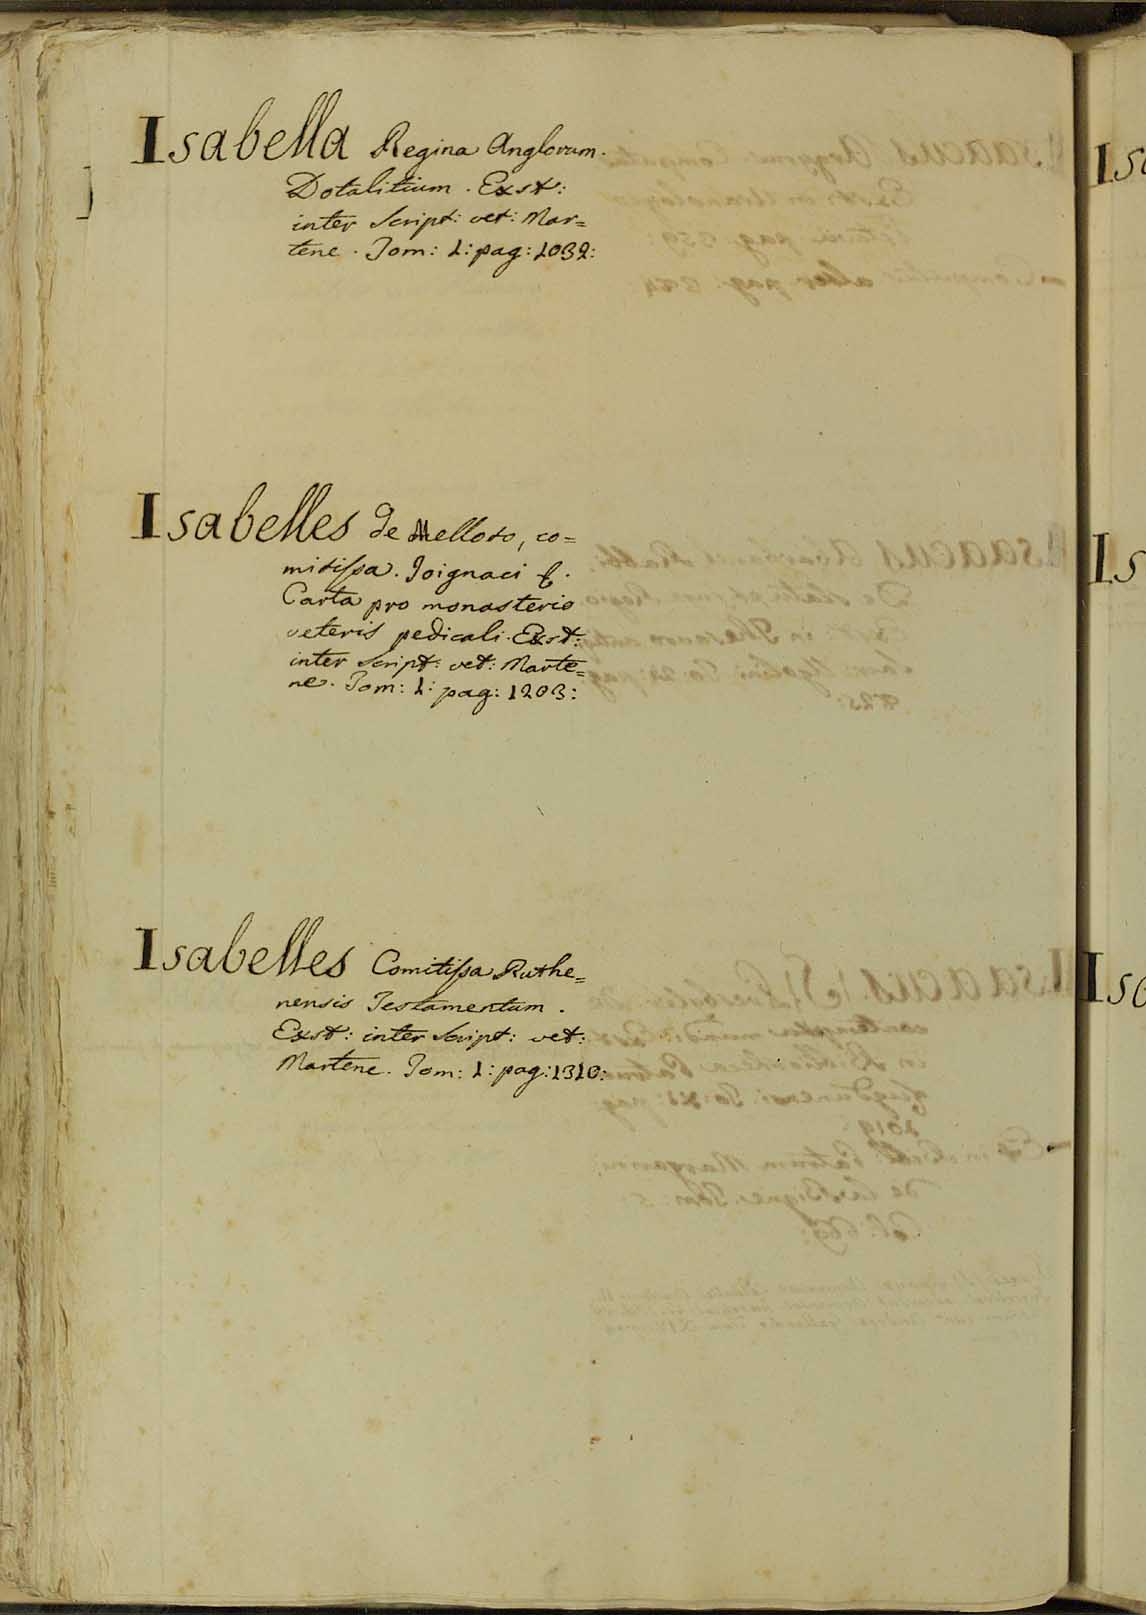 Isabella Regina Anglorum.
Dotalitium. Exst:
inter Script: vet: Mar=
tene. Tom: 1: pag: 1032:
Isabelles de Melloto, co=
mitissa. Joignaci &.
Carta pro monasterio
veteris pedicali. Exst:
inter Script: vet: Marte=
ne. Tom: 1: pag: 1203:
Isabelles Comitissa Ruthe=
nensis Testamentum.
Exst: inter Script: vet:
Martene. Tom: 1: pag: 1310: